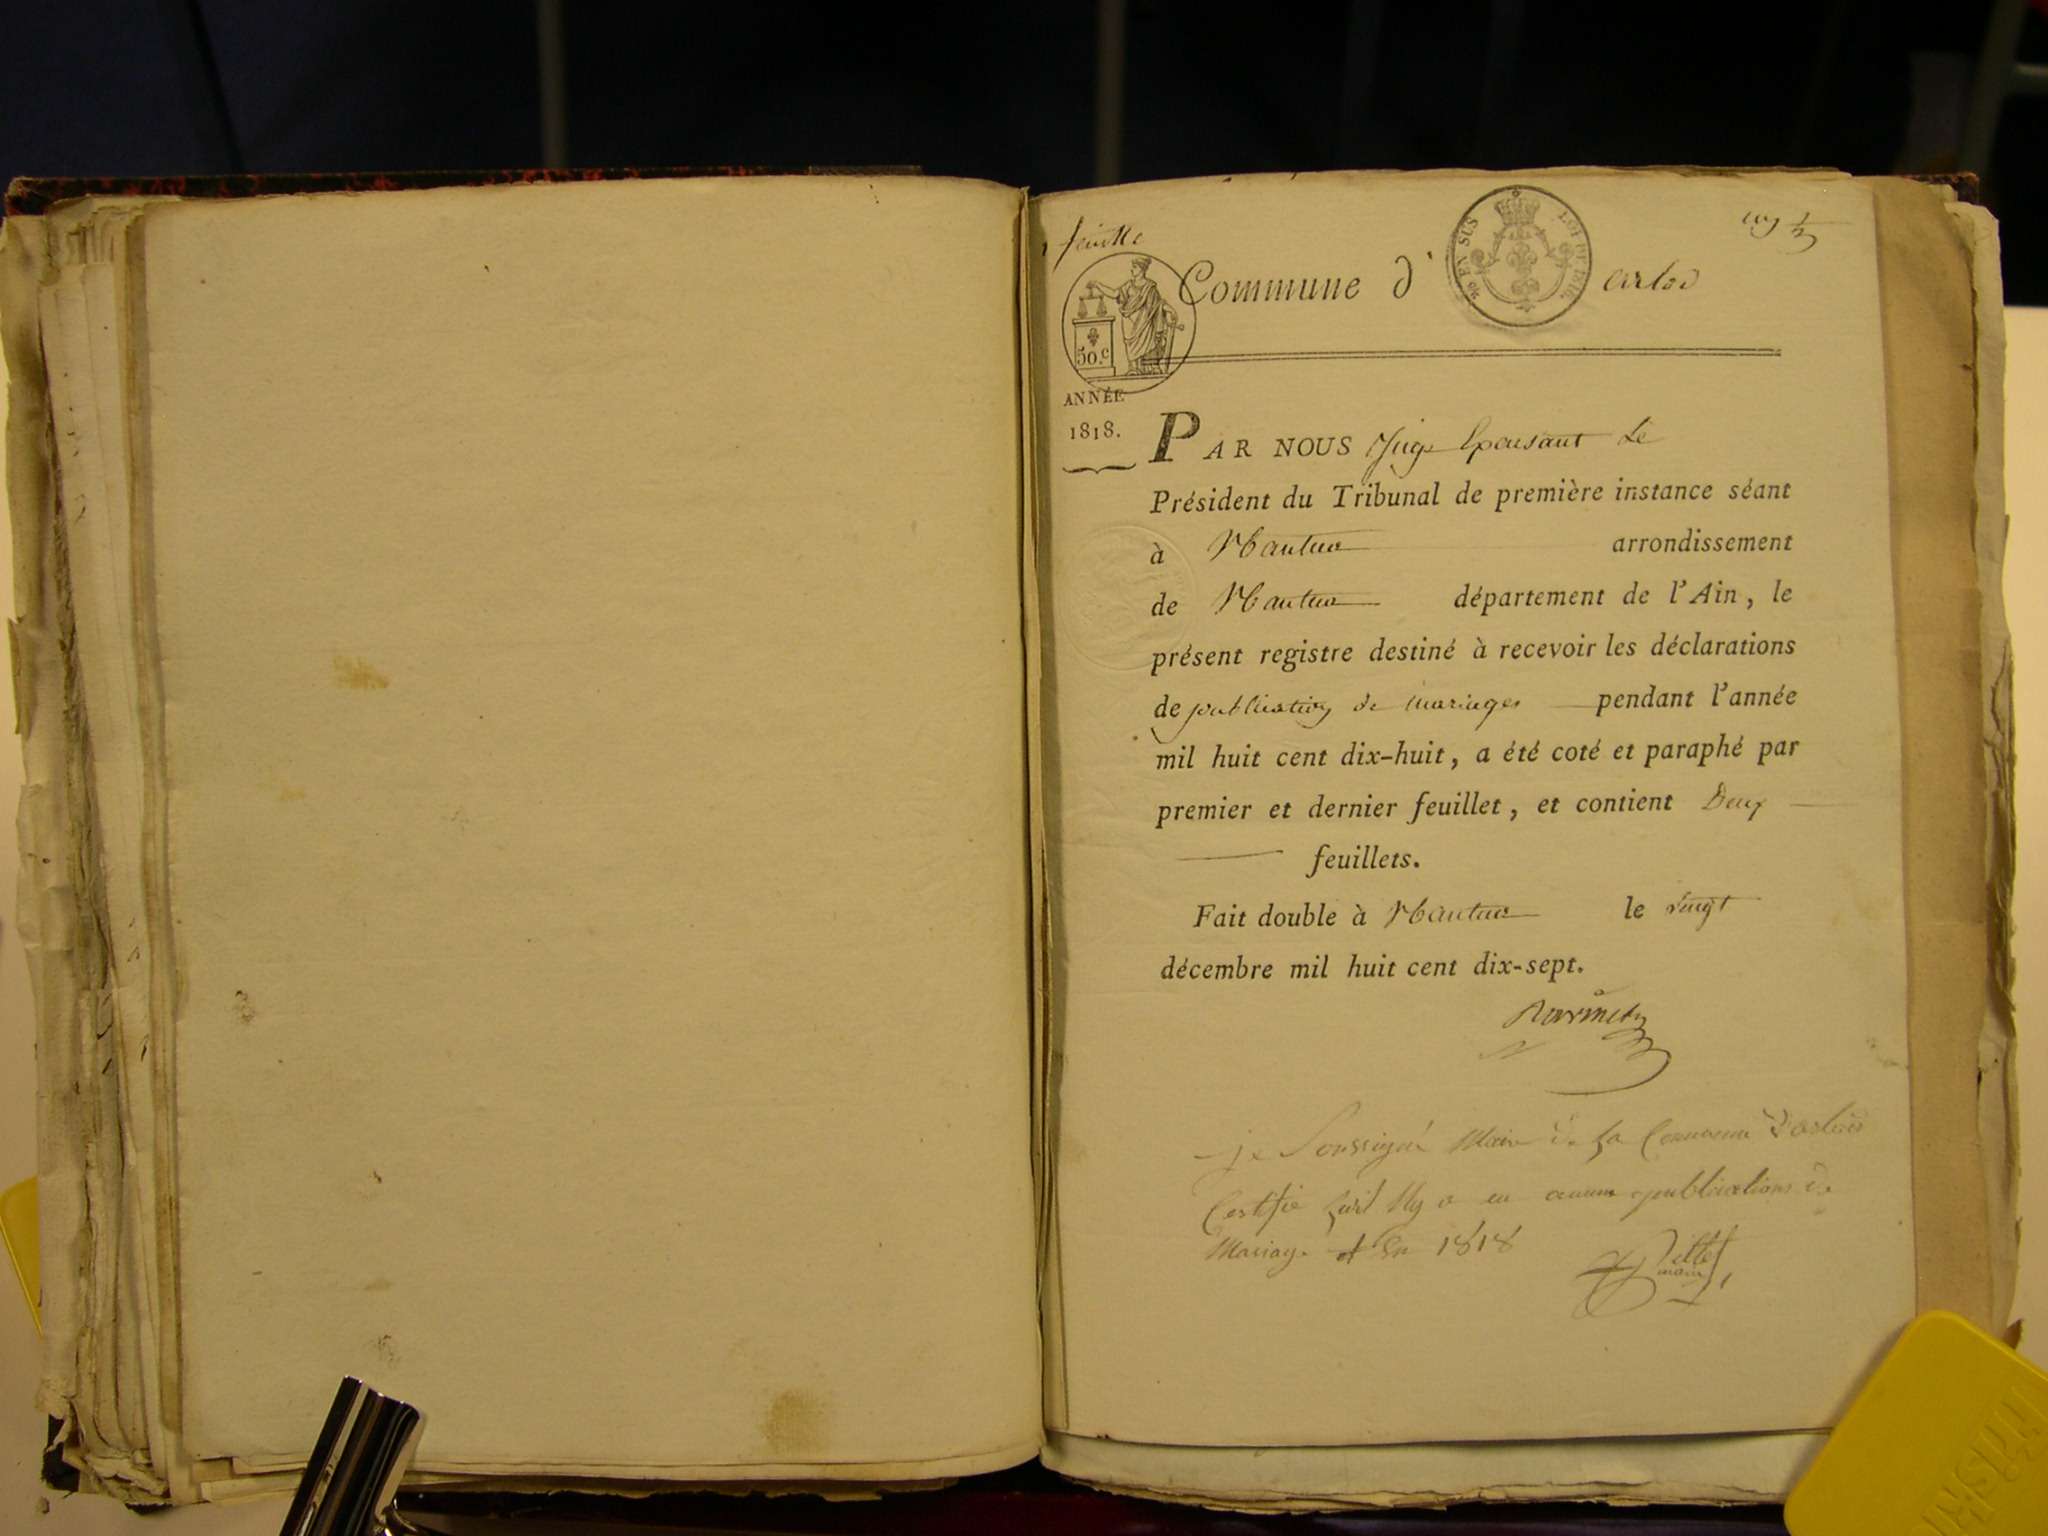 feuille
Commune d' arlod
EN SUS
LOI DE 1816.
50.c
ANNÉE
1818.
PAR NOUS Juge Exposant Le
Président du Tribunal de première instance séant
à Nantua arrondissement
de Nantua département de l'Ain, le
présent registre destiné à recevoir les déclarations
de publication de mariages pendant l'année
mil huit cent dix-huit, a été coté et paraphé par
premier et dernier feuillet, et contient Deux
feuillets.
Fait double à Nantua le vingt
décembre mil huit cent dix-sept.
je Soussigné Maire de la Commune d'arlod
Certifie quil ny a eu aucune publications de
Mariage En 1818
maire